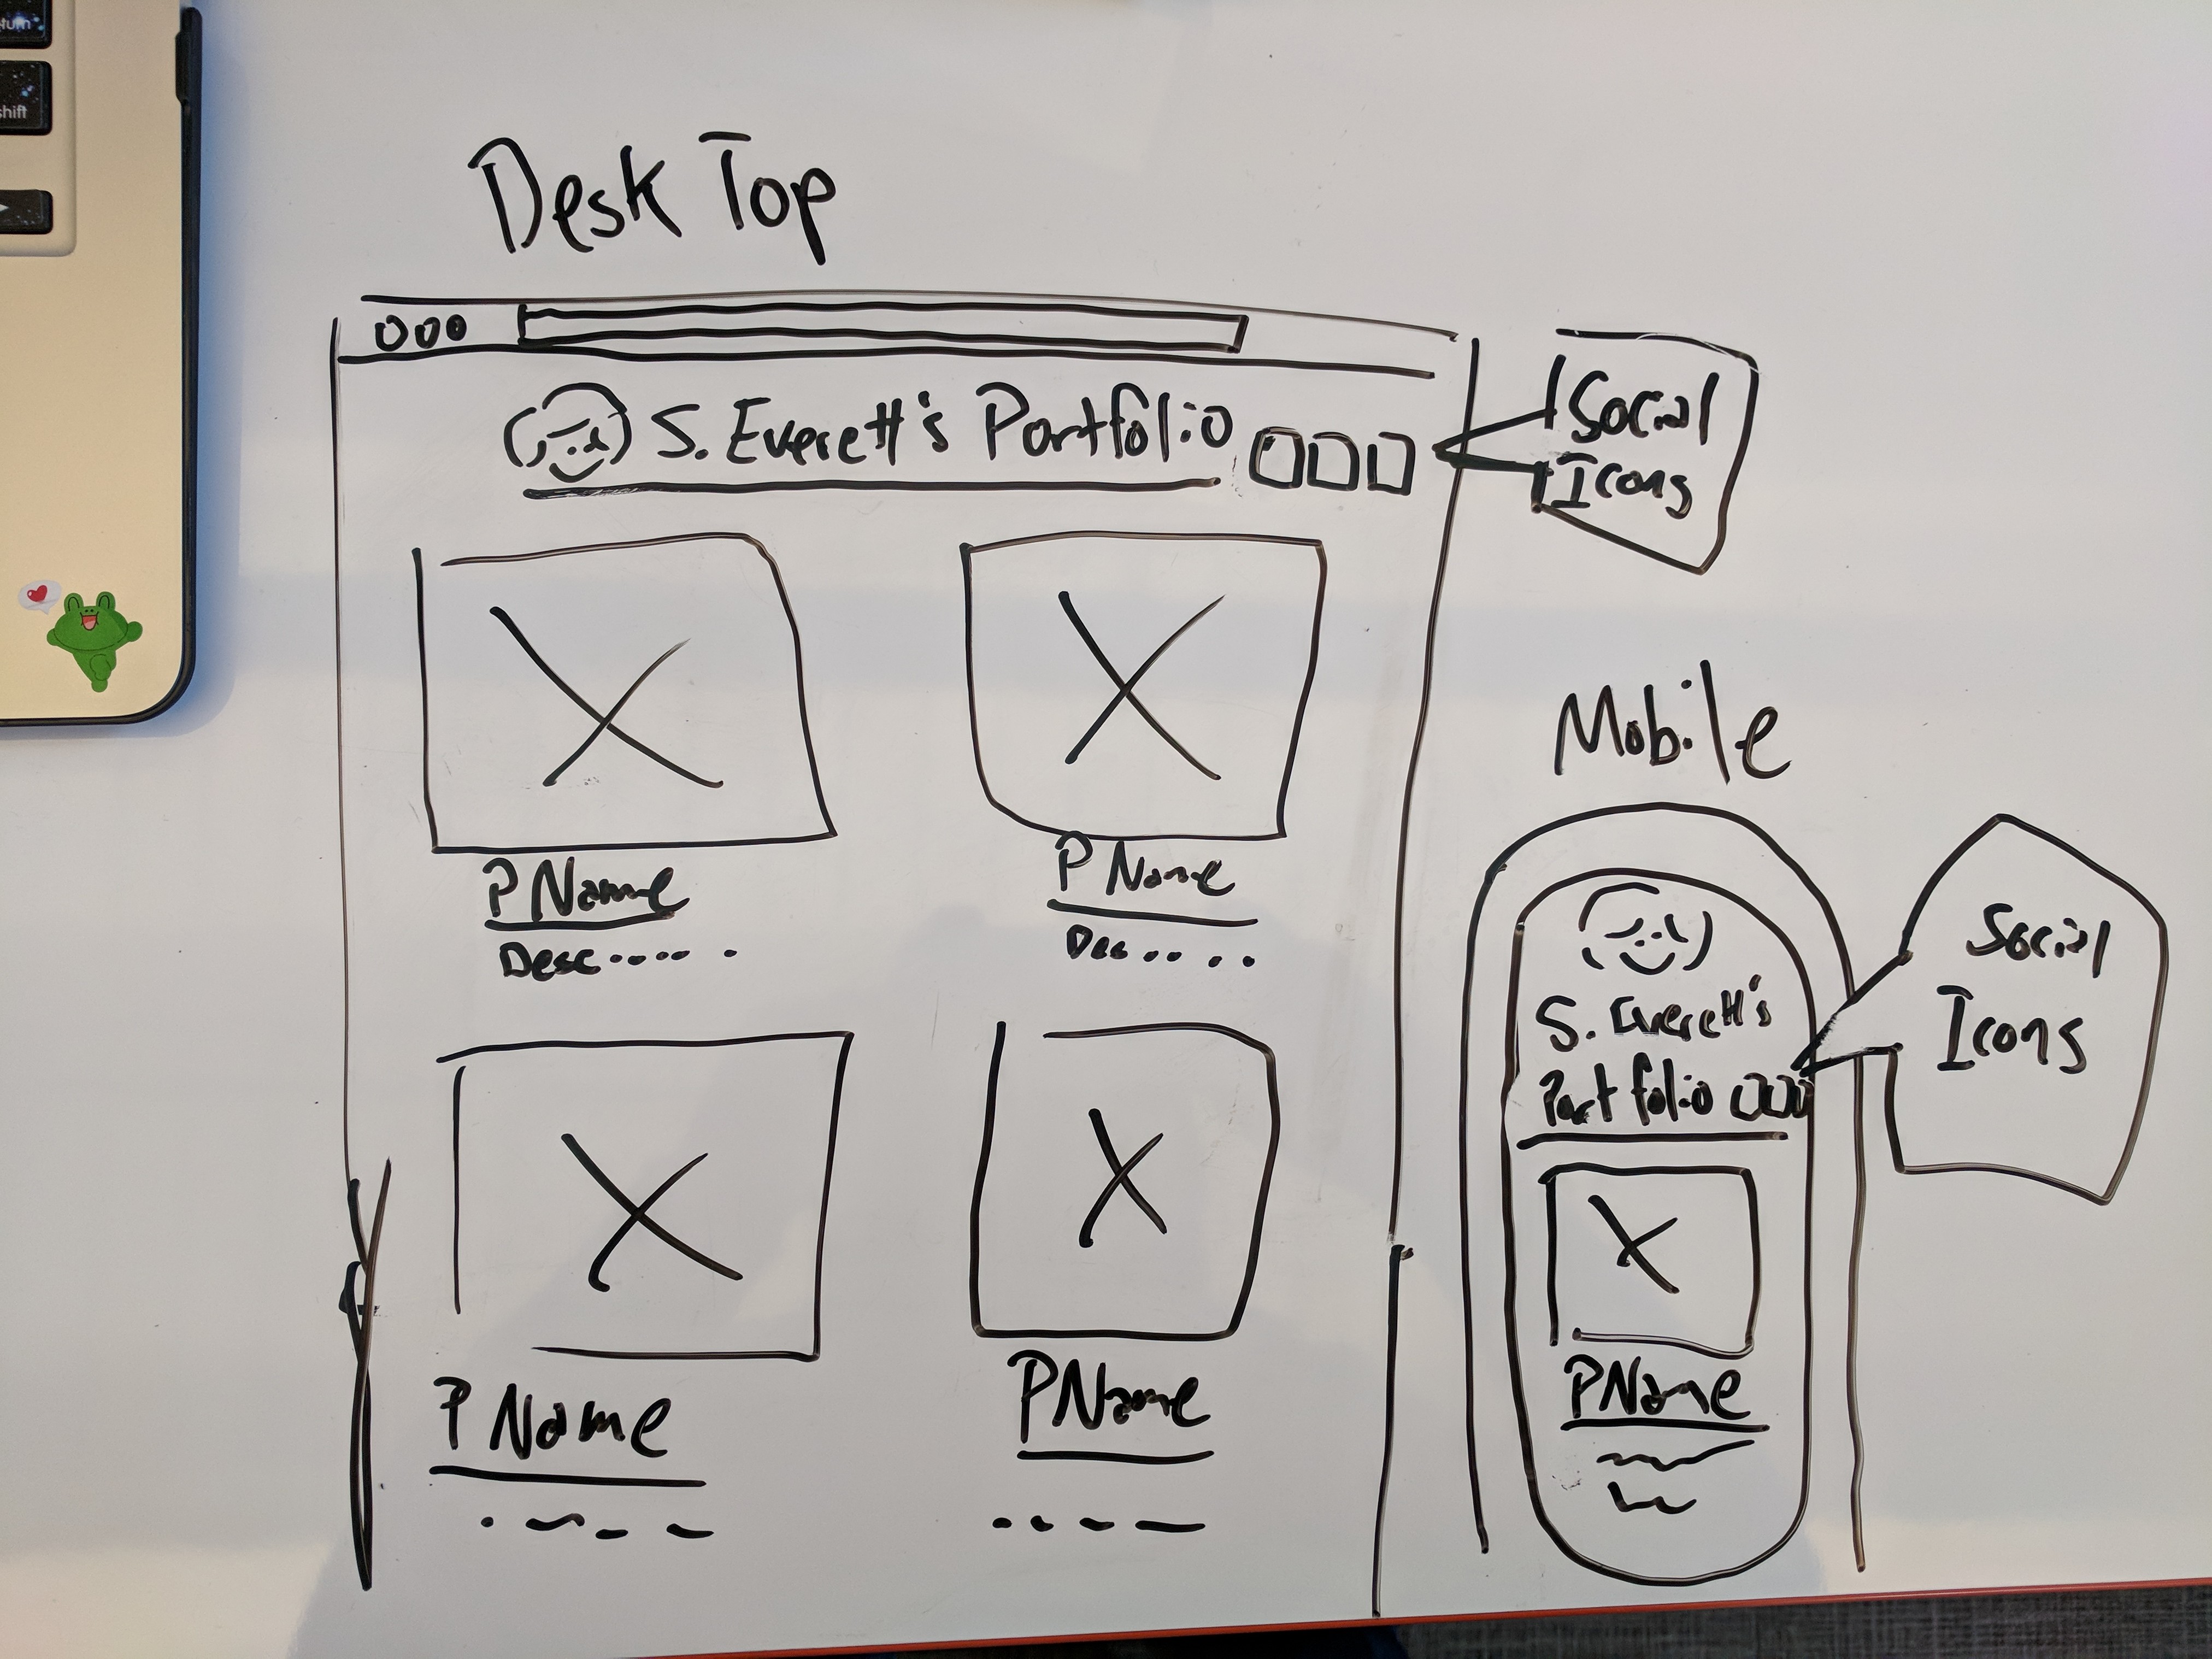 turn
shift
Desk Top
S. Everett's Portfolio
Social
Icons
P Name
Desc.....
P Name
Des.. ..
P Name
PName
Mobile
S. Everett's
Portfolio
PName
Social
Icons